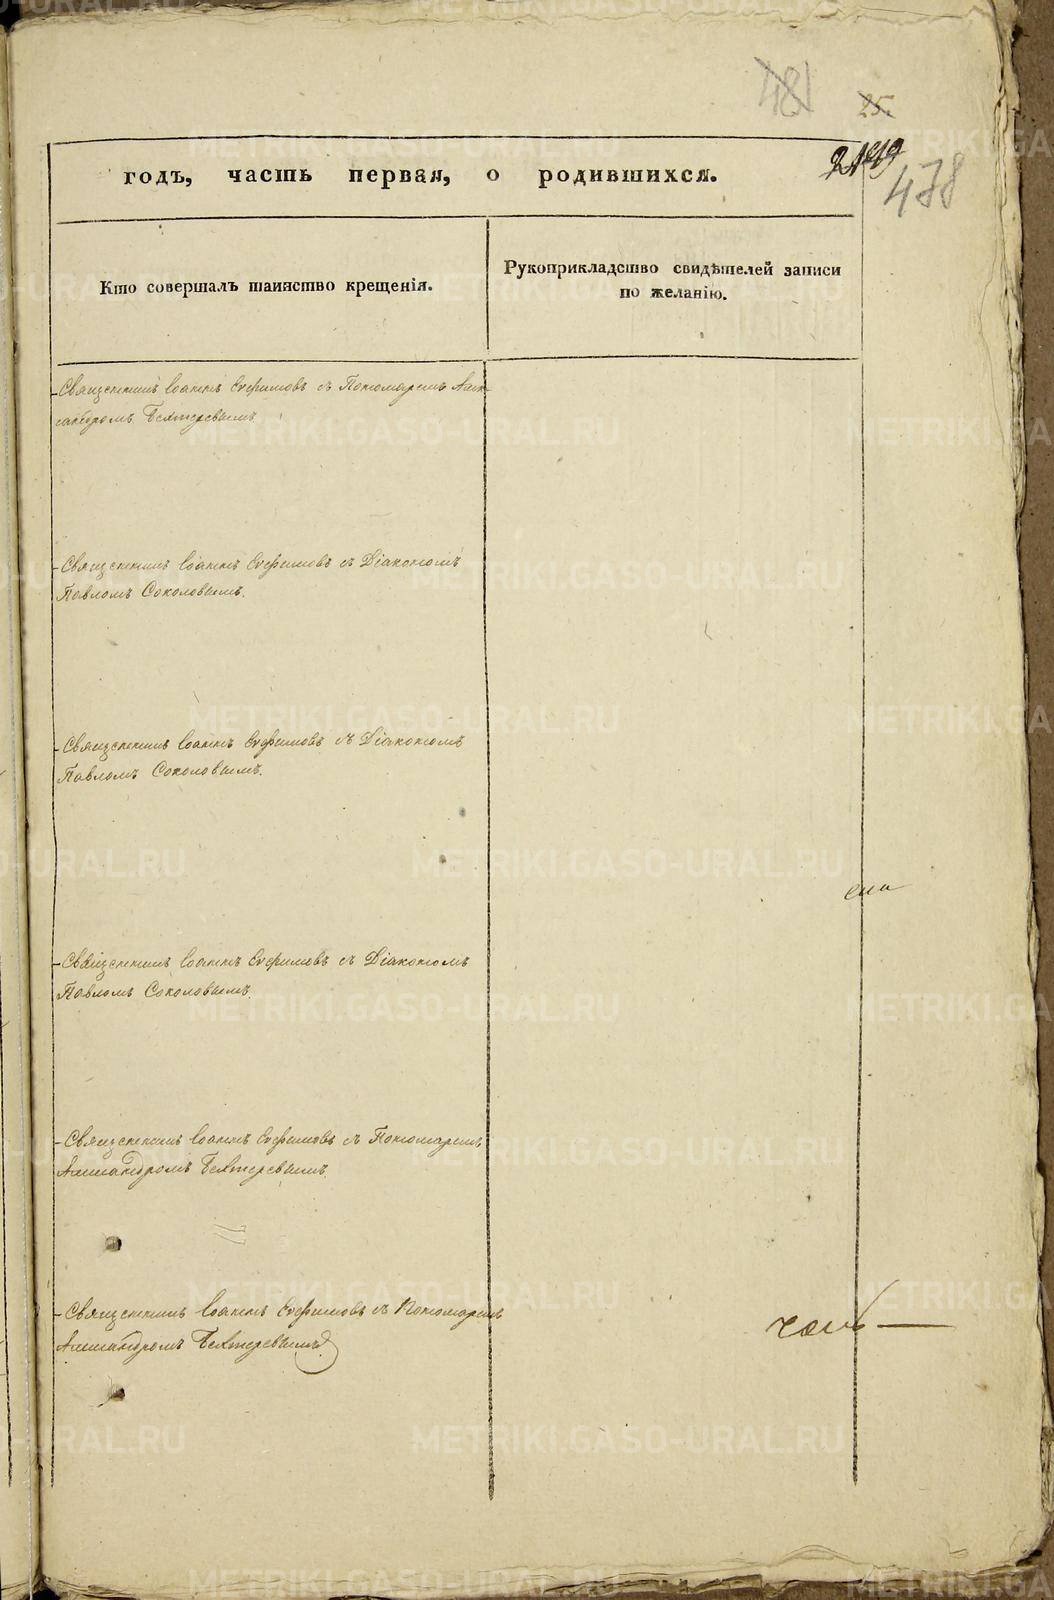 481
25.
478
годъ, часть первая, о родившихся.
Кто совершалъ таинство крещенія.
Рукоприкладство свидѣтелей записи
по желанію.
Священникъ Іоаннъ Евфимовъ съ Пономаремъ Алек-
сандромъ Бехтеревымъ.
Священникъ Іоаннъ Евфимовъ съ Діакономъ
Павломъ Соколовымъ.
Священникъ Іоаннъ Евфимовъ съ Діакономъ
Павломъ Соколовымъ.
Священникъ Іоаннъ Евфимовъ съ Діакономъ
Павломъ Соколовымъ.
Священникъ Іоаннъ Евфимовъ съ Пономаремъ
Александромъ Бехтеревымъ.
Священникъ Іоаннъ Евфимовъ съ Пономаремъ
Александромъ Бехтеревымъ
METRIKI.GASO-URAL.RU